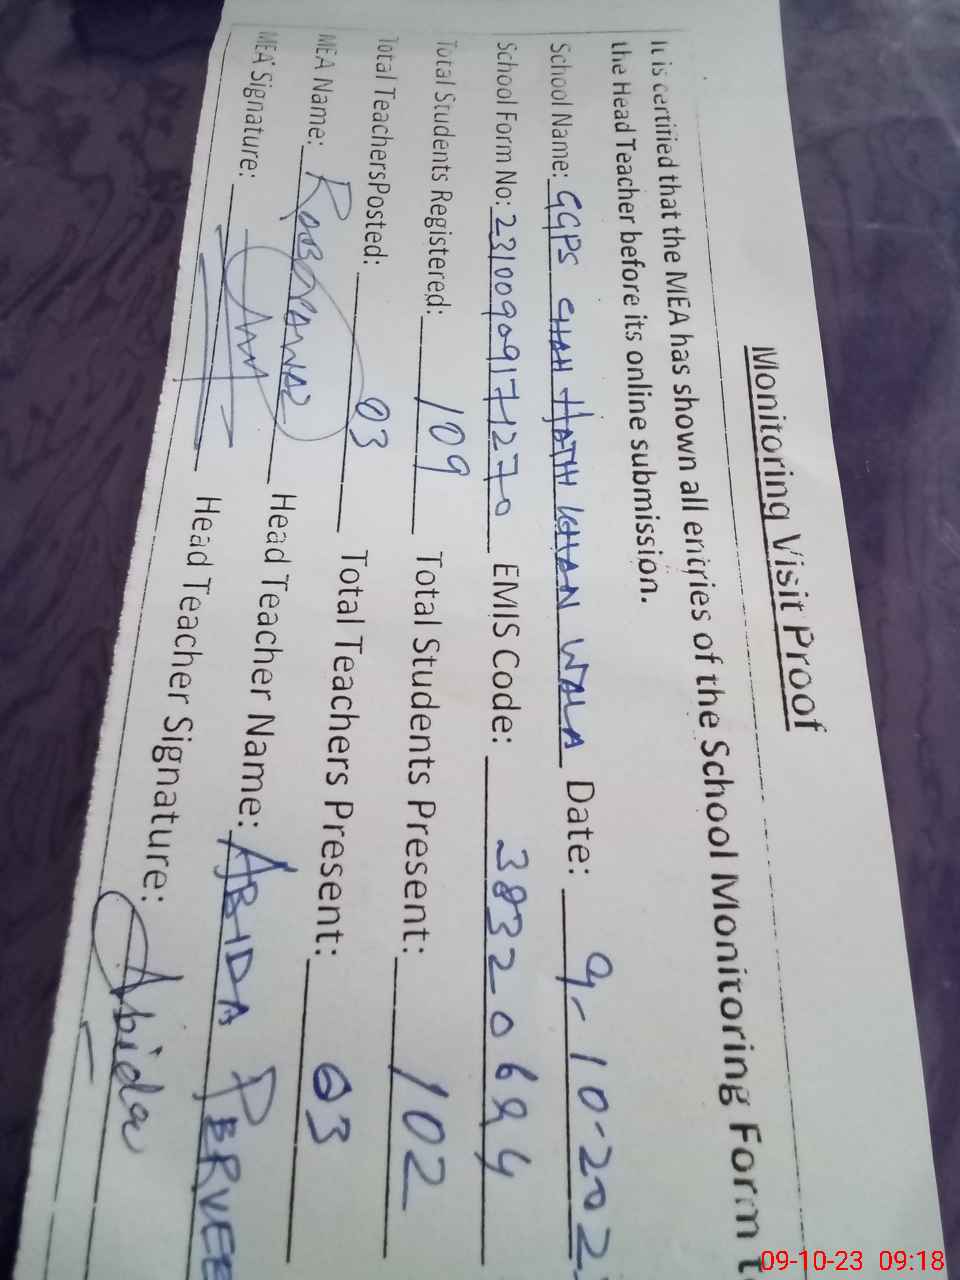 Monitoring Visit Proof
It is certified that the MEA has shown all entries of the School Monitoring Form to
the Head Teacher before its online submission.
School Name: GGPS CHAH HATH KHAN WALA Date: 9-10-202
School Form No: 23100909171270 EMIS Code: 38320694
Total Students Registered: 109 Total Students Present: 102
Total Teachers Posted: 03 Total Teachers Present: 03
MEA Name: Head Teacher Name: ABIDA PERVEE
MEA Signature: Head Teacher Signature: Abida
09-10-23 09:18